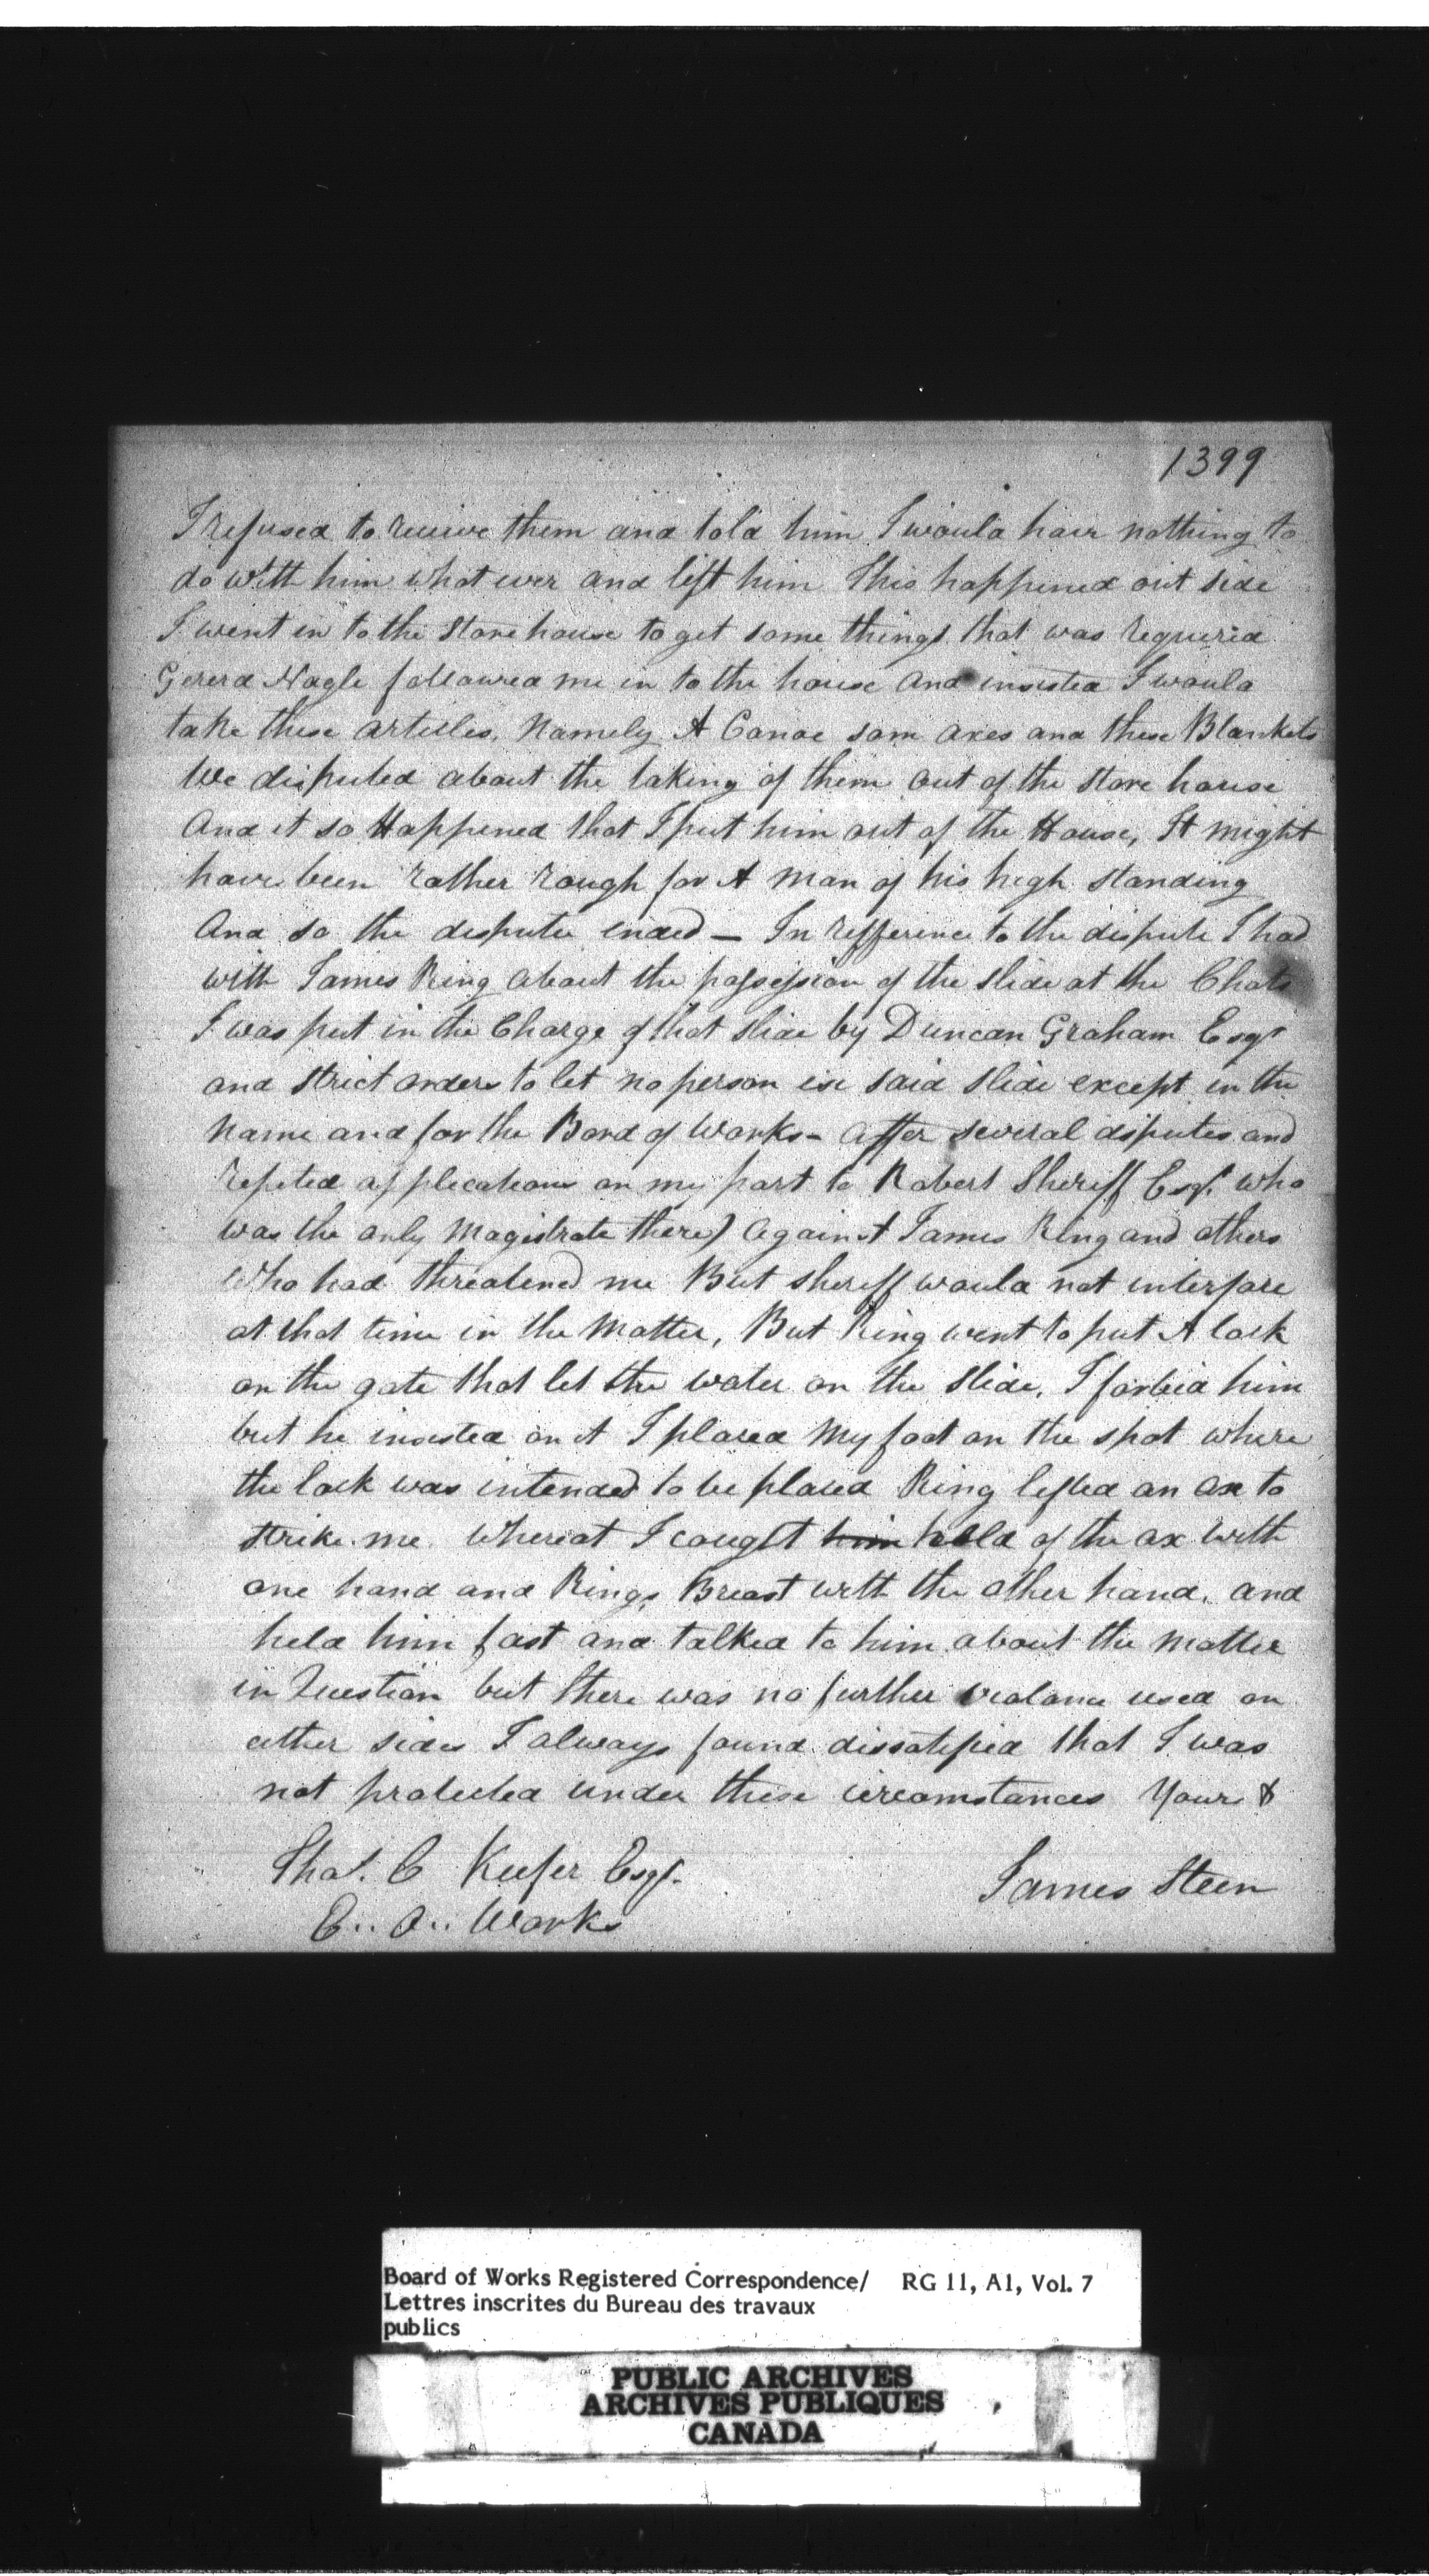 1399
I refused to receive them and told him I would have nothing to
do with him what ever and left him This happened out side
I went in to the Store house to get some things that was requried
Gererd Nagle followred me in to the house and insisted I would
take these artecles, Namely A Canoe som axes and these Blankets
We disputed about the taking of them out of the store house
And it so Happened that I put him out of the House, It might
have been rather rough for A man of his high standing
And so the disputee ended — In refference to the dispute I had
with James Ring about the possession of the slide at the Chats
I was put in the Charge of that slide by Duncan Graham Esqr
and strict orders to let no person use said slide except in the
Name and for the Bord of Works - After several disputes and
repeted applecations on my part to Robert Sheriff Esqr. who
was the only Magistrate there) against James Ring and others
Who had threatened me But sheriff would not interfare
at that time in the Matter, But Ring went to put A lock
on the gate that let the water on the slide, I forbid him
but he insisted on it I placed My foot on the spot where
the lock was intended to be placed Ring lefted an ax to
strike me whereat I cought him hold of the ax with
one hand and Rings Breast with the other hand, and
held him fast and talked to him about the matter
in Question but there was no further violance used on
either sides I always found dissatified that I was
not protected under these circomstances Yours &
Thos. C Keefer Esqr.
E.. O.. Works
James Steen
Board of Works Registered Correspondence/ RG 11, A1, Vol. 7
Lettres inscrites du Bureau des travaux
publics
PUBLIC ARCHIVES
ARCHIVES PUBLIQUES
CANADA